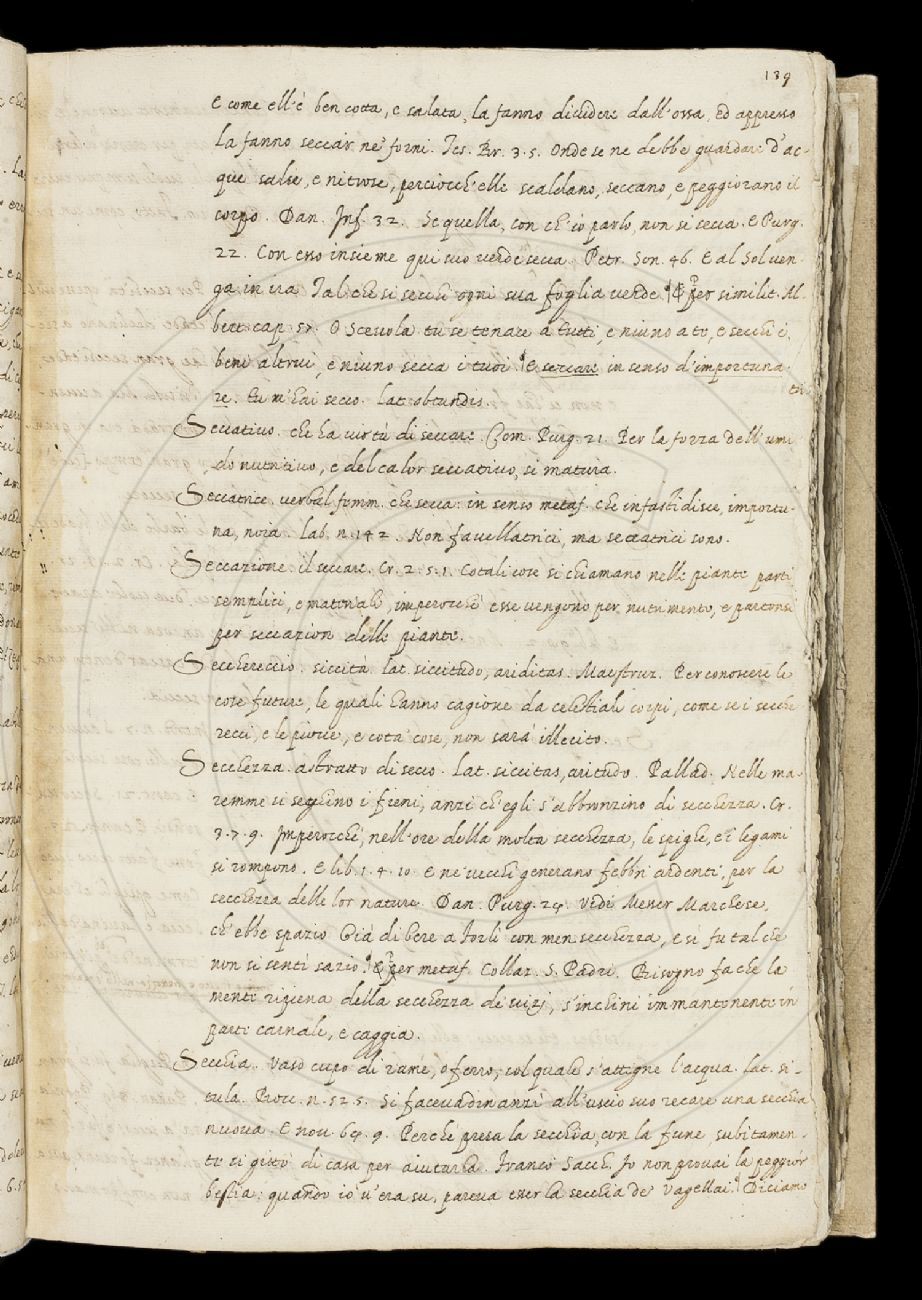 139
E come ell'è ben cotta, e salata, la fanno dividere dall'ossa, ed appresso
la fanno seccar ne' forni. Tes. Br. 3. 5. Onde se ne debbe guardare d'ac-
que salse, e nitrose, perciocch'elle scaldano, seccano, e peggiorano il
corpo. Dan. Inf. 32. Se quella, con ch'io parlo, non si secca. E Purg.
22. Con esso insieme qui suo verde secca. Petr. Son. 46. E al Sol ven-
ga in ira Tal che si secchi ogni sua foglia verde. ¶ E per similit. Al-
bert. cap. 57. O Scevola tu se tenare a tutti, e niuno a te, e secchi i
beni altrui, e niuno secca i tuoi. ¶ E seccare in senso d'importuna-
re. Tu m'hai secco. Lat. obtundis.
Seccativo. che ha virtù di seccare. Com. Purg. 21. Per la forza dell'umi-
do nutritivo, e del calor seccativo, si matura.
Seccatrice. verbal. femm. che secca: in senso metaf. che infastidisce, importu-
na, noia. Lab. n. 142. Non favellatrici, ma seccatrici sono.
Seccazione. il seccare. Cr. 2. 5. 1. Cotali cose si chiamano nelle piante parti
semplici, e materiali, imperocchè esse vengono per nutrimento, e partonsi
per seccazion delle piante.
Secchereccio. siccità. Lat. siccitudo, ariditas. Maestruz. Per conoscere le
cose future, le quali hanno cagione da celestiali corpi, come se i secche-
recci, e le piove, e cota' cose, non sarà illecito.
Secchezza. astratto di secco. Lat. siccitas, aritudo. Pallad. Nelle ma-
remme si seghino i fieni, anzi ch'egli s'abbronzino di secchezza. Cr.
3. 7. 9. Imperocchè, nell'ore della molta secchezza, le spighe, e i legami
si rompono. E lib. 1. 4. 10. E ne' vecchi generano febbri ardenti, per la
secchezza delle lor nature. Dan. Purg. 24. Vidi Messer Marchese,
ch'ebbe spazio Già di bere a Forlì con men secchezza, e sì fu tal che
non si sentì sazio. ¶ E per metaf. Collaz. S. Padri. Bisogno fa che la
mente ripiena della secchezza de' vizj, s'inchini immantanente in
parti carnale, e caggia.
Secchia. Vaso cupo di rame, o ferro, col quale s'attigne l'acqua. Lat. si-
tula. Bocc. n. 52. 5. Si faceva dinanzi all'uscio suo recare una secchia
nuova. E nov. 64. 9. Perchè presa la secchia, con la fune, subitamen-
te si gittò di casa per aiutarla. Franco Sacch. Io non provai la peggior
bestia: quando io v'era su, pareva esser la secchia de' Vagellai. ¶ Diciamo